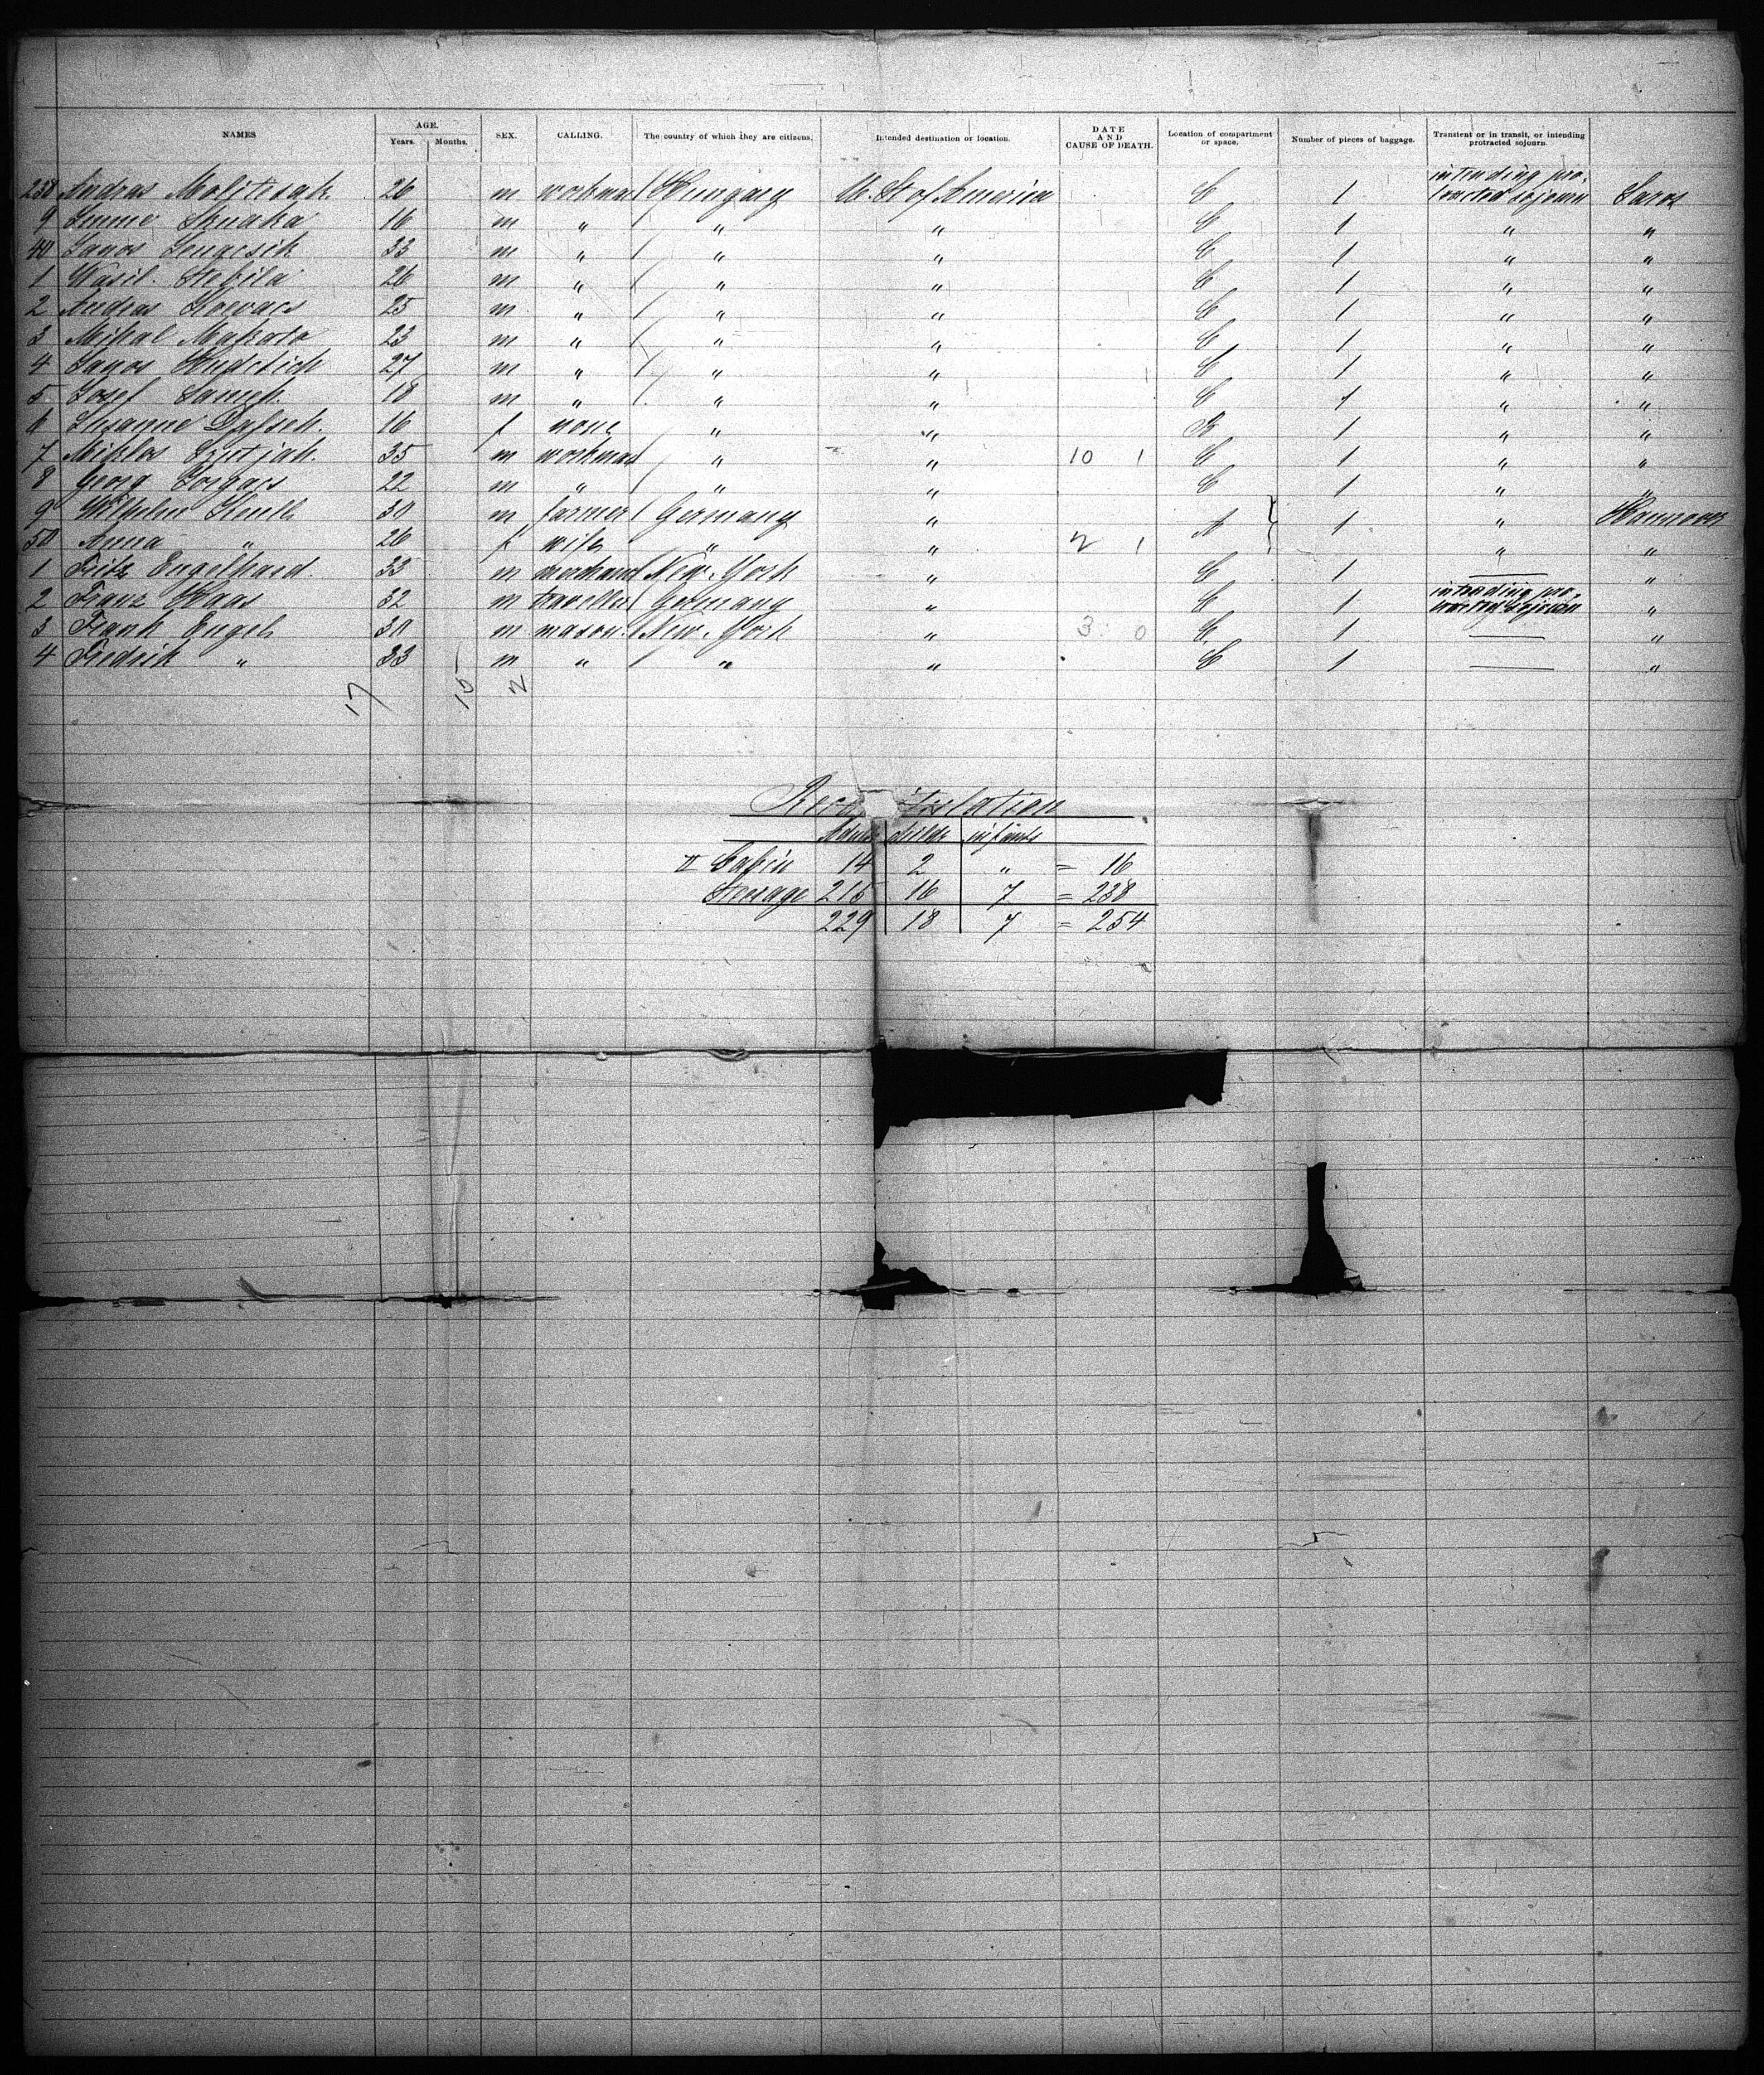 NAMES AGE. Years. Months. SEX. CALLING. The country of which they are citizens. Intended destination or location. DATE AND CAUSE OF DEATH. Location of compartment or space. Number of pieces of baggage. Transient or in transit, or intending protracted sojourn.
238 Andras 26 m workman Hungary U. St of America C 1 intending protracted sojourn Saros
9 16 m " " " C 1 " "
40 Janos 33 m " " " C 1 " "
1 Wasil 26 m " " " C 1 " "
2 Andras Kowacs 25 m " " " C 1 " "
3 23 m " " " C 1 " "
4 Janos 27 m " " " C 1 " "
5 Josef 18 m " " " C 1 " "
6 Susanne 16 f none " " B 1 " "
7 Miklos 35 m workman " " 10 1 C 1 " "
8 Georg 22 m " " " C 1 " "
9 Wilhelm 30 m farmer Germany " A 1 " Hannover
50 Anna " 26 f wife " " 2 1 " "
1 Fritz Engelhard. 33 m merchant New-York " C 1 — "
2 Franz Haas 32 m traveller Germany " C 1 intending protracted sojourn "
3 Frank Engel 30 m mason. New-York " 3 0 C 1 — "
4 Fredrik " 33 m " " " C 1 — "
17 15 2
Adults childr infants
II Cabin 14 2 " = 16
Steerage 215 16 7 = 238
229 18 7 = 254